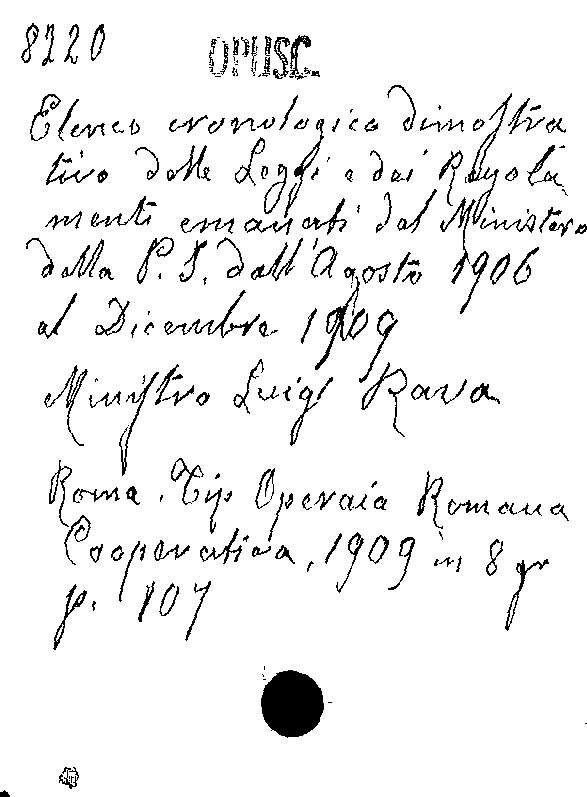 8220
OPUSC.
Elenco cronologico dimostra
tivo delle Leggi e dei Regola
menti emanati dal Ministero
della P. I. dall'Agosto 1906
al Dicembre 1909
Ministro Luigi Rava
Roma. Tip Operaia Romana
Cooperativa, 1909 in 8 gr
p. 107